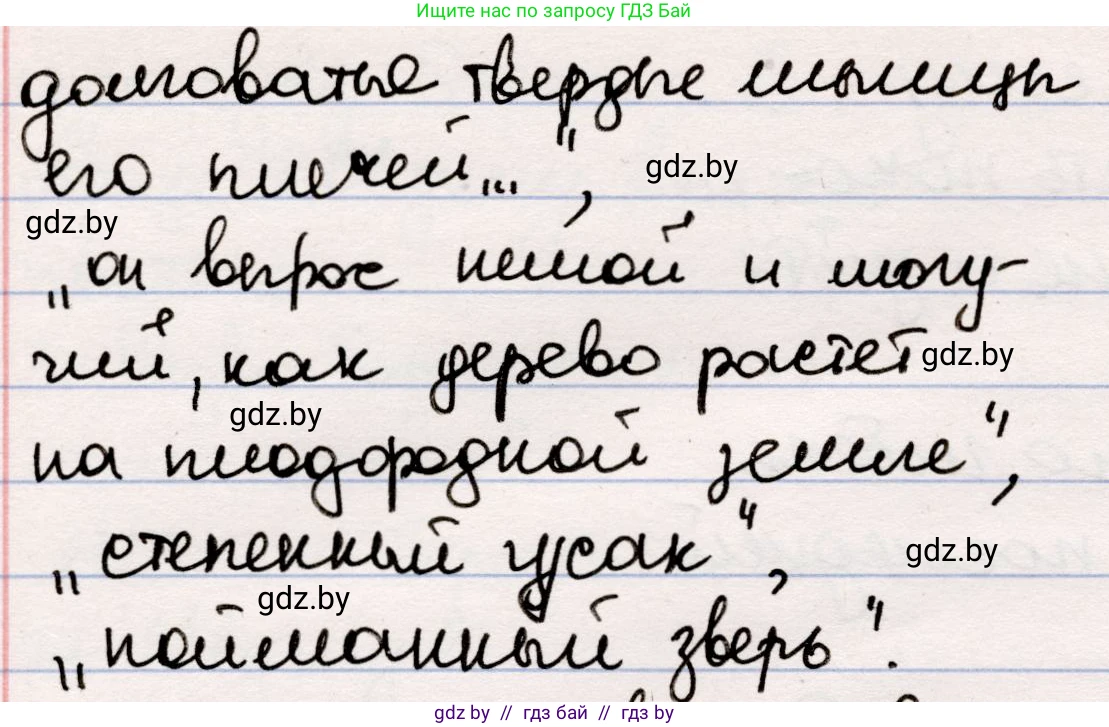 Ищите нас по запросу ГДЗ Бай
долговатые твердые мышцы
его плечей...", gdz.by
gdz.by
„он вырос немой и могу-
чий, как дерево растет gdz.by
gdz.by
на плодородной земле",
„степенный гусак", gdz.by
gdz.by
„пойманный зверь".
gdz by // гдз бай // гдз by